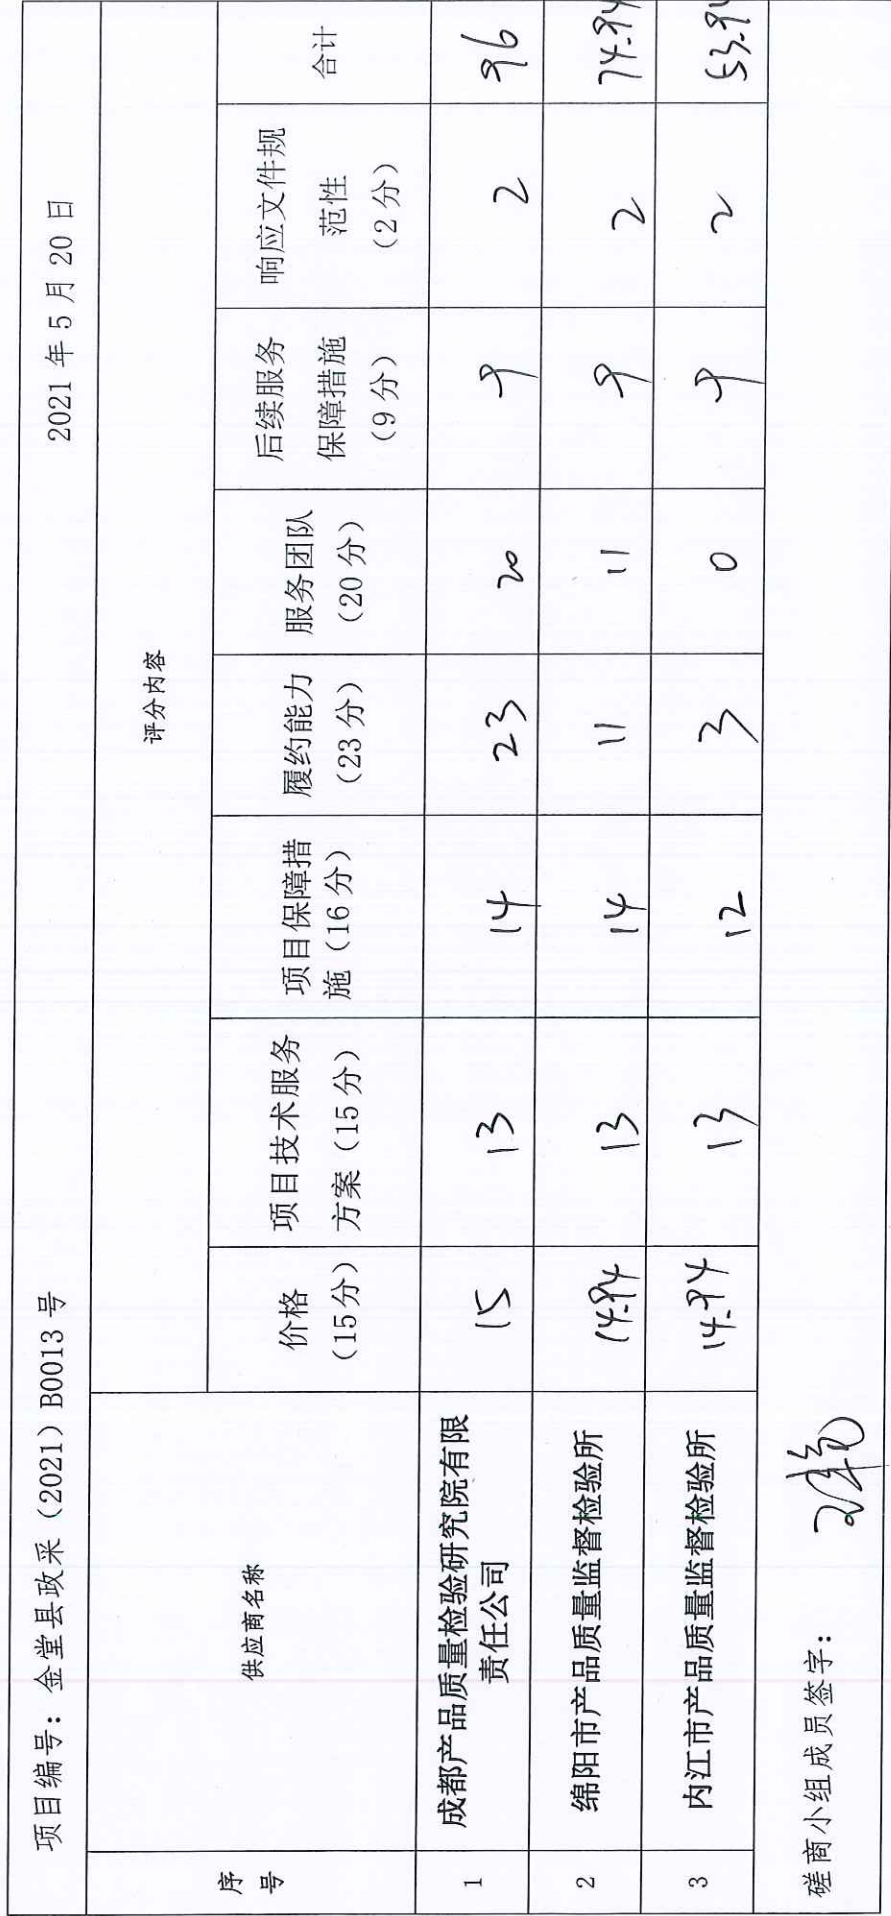 项目编号：金堂县政采（2021）B0013 号 2021 年 5 月 20 日
序号 供应商名称 评分内容
价格（15分） 项目技术服务方案（15分） 项目保障措施（16分） 履约能力（23分） 服务团队（20分） 后续服务保障措施（9分） 响应文件规范性（2分） 合计
1 成都产品质量检验研究院有限责任公司 15 13 14 23 20 9 2 96
2 绵阳市产品质量监督检验所 14.94 13 14 11 11 9 2 74.94
3 内江市产品质量监督检验所 14.94 13 12 3 0 9 2 53.94
磋商小组成员签字：